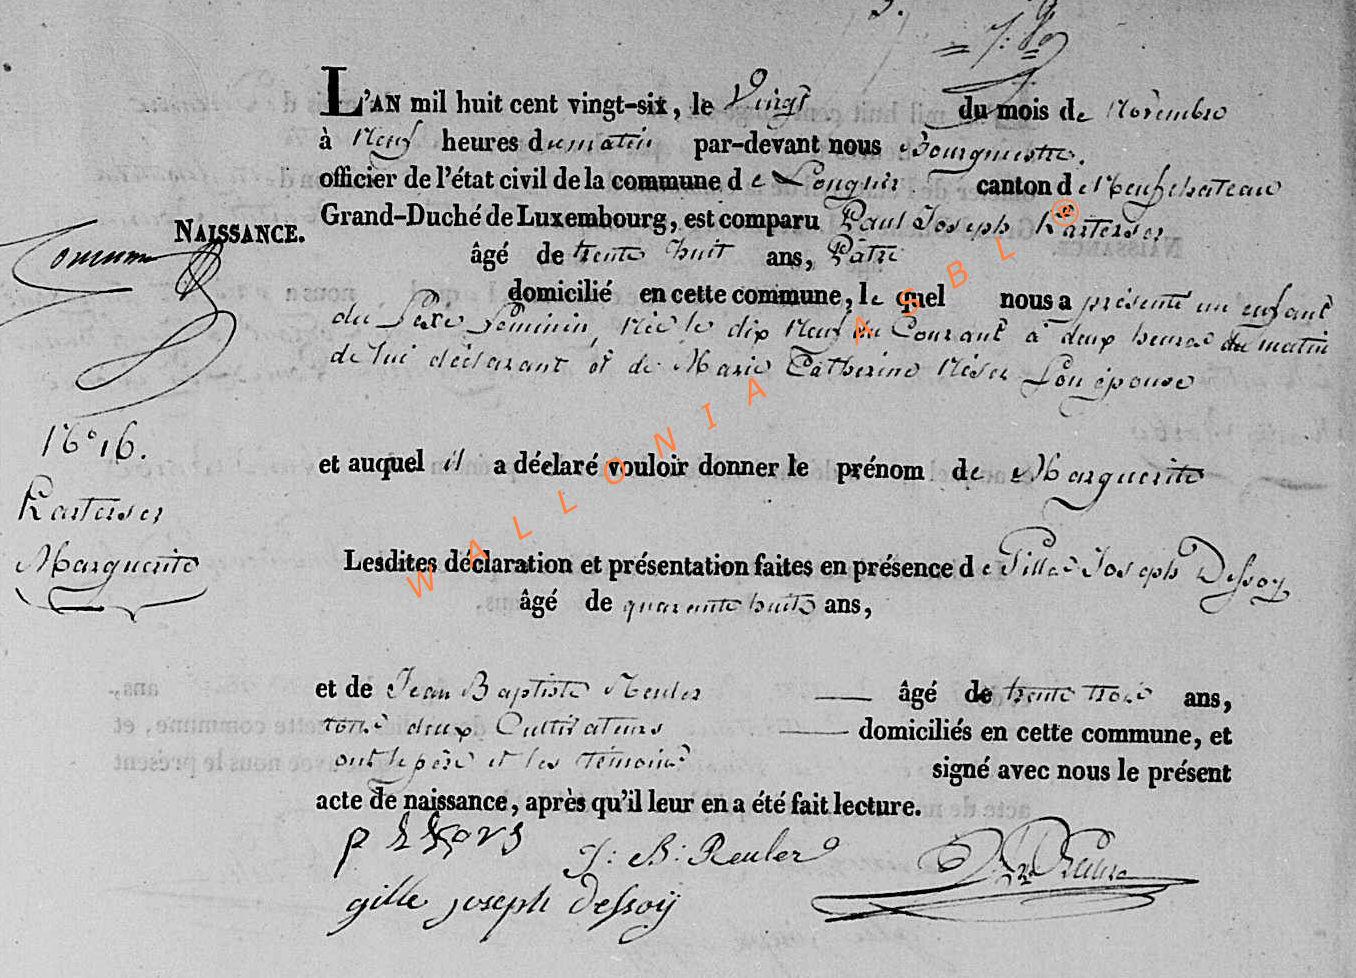 L'AN mil huit cent vingt-six, le Vingt du mois de Novembre
à Neuf heures du matin par-devant nous Bourgmestre.
officier de l'état civil de la commune de Longlier canton de Neufchateau
NAISSANCE. Grand-Duché de Luxembourg, est comparu Paul Joseph Karterser
âgé de trente huit ans, Pâtre
domicilié en cette commune, le quel nous a présenté un enfant
du Sexe feminin, Née le dix Neuf du Courant à deux heures du matin
de lui déclarant et de Marie Catherine Son épouse
N° 16.
et auquel il a déclaré vouloir donner le prénom de Marguerite
Karterser
Marguerite
Lesdites déclaration et présentation faites en présence de Gille Joseph Dessoy
âgé de quarante huit ans,
et de Jean Baptiste Reuler âgé de trente trois ans,
tous deux Cultivateurs domiciliés en cette commune, et
ont le père et les témoins signé avec nous le présent
acte de naissance, après qu'il leur en a été fait lecture.
J: B: Reuler
gille joseph Dessoÿ
WALLONIA ASBL ©